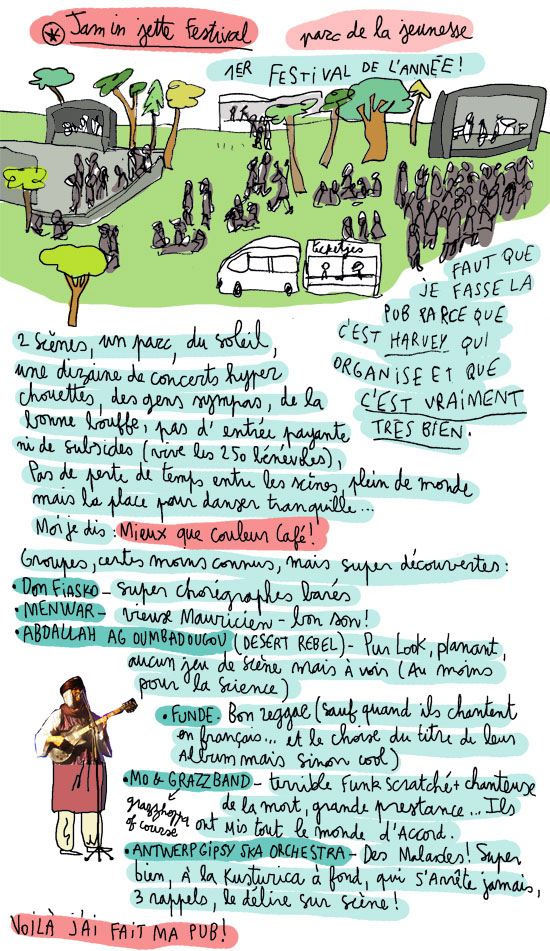 * Jam in jette Festival
parc de la jeunesse
1ER FESTIVAL DE L'ANNÉE!
ticketjes
FAUT QUE
JE FASSE LA
PUB PARCE QUE
C'EST HARVEY QUI
ORGANISE ET QUE
C'EST VRAIMENT
TRÈS BIEN.
2 scènes, un parc, du soleil,
une dizaine de concerts hyper
chouettes, des gens sympas, de la
bonne bouffe, pas d'entrée payante
ni de subsides (vive les 250 bénévoles),
Pas de perte de temps entre les scènes, plein de monde
mais la place pour danser tranquille...
Moi je dis: Mieux que couleur Café!
Groupes, certes moins connus, mais super découvertes:
• DOM FIASKO - super chorégraphes barés
• MENWAR - vieux Mauricien - bon son!
• ABDALLAH AG OUMBADOUGOU (DESERT REBEL) - Pur Look, planant,
aucun jeu de scène mais à voir (Au moins
pour la Science)
• FUNDE. Bon reggae (sauf quand ils chantent
en français... et le choix du titre de leur
Album mais sinon cool)
• MO & GRAZZBAND - terrible Funk Scratché + chanteuse
de la mort, grande prestance... Ils
ont mis tout le monde d'Accord.
grazzhoppa
of course
• ANTWERP GIPSY SKA ORCHESTRA - Des Malades! Super
bien, à la Kusturica à fond, qui s'Arrête jamais,
3 rappels, le délire sur scène!
VOILÀ J'AI FAIT MA PUB!